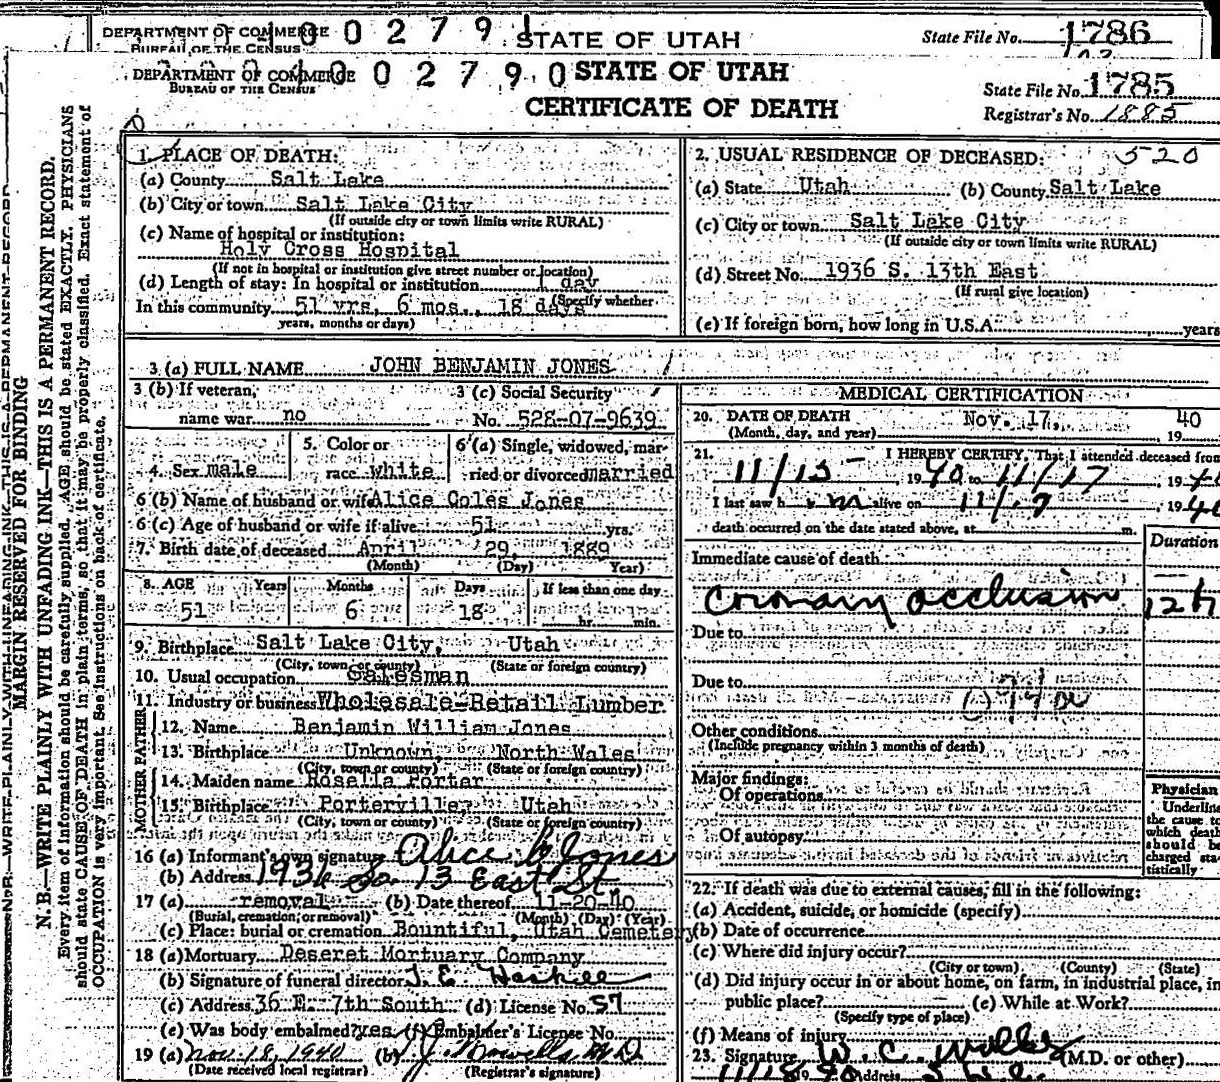 DEPARTMENT OF COMMERCE
BUREAU OF THE CENSUS
STATE OF UTAH
State File No. 1786
DEPARTMENT OF COMMERCE 0 0 2 7 9 0 STATE OF UTAH
BUREAU OF THE CENSUS
CERTIFICATE OF DEATH
State File No. 1785
Registrar's No. 1885
MARGIN RESERVED FOR BINDING
N. B.—WRITE PLAINLY WITH UNFADING INK—THIS IS A PERMANENT RECORD.
Every item of information should be carefully supplied. AGE should be stated EXACTLY. PHYSICIANS
should state CAUSE OF DEATH in plain terms, so that it may be properly classified. Exact statement of
OCCUPATION is very important. See instructions on back of certificate.
1. PLACE OF DEATH:
(a) County Salt Lake
(b) City or town Salt Lake City
(If outside city or town limits write RURAL)
(c) Name of hospital or institution:
Holy Cross Hospital
(If not in hospital or institution give street number or location)
(d) Length of stay: In hospital or institution 1 day
(Specify whether
In this community 51 yrs, 6 mos., 18 days
years, months or days)
2. USUAL RESIDENCE OF DECEASED: 520
(a) State Utah (b) County Salt Lake
(c) City or town Salt Lake City
(If outside city or town limits write RURAL)
(d) Street No. 1936 S. 13th East
(If rural give location)
(e) If foreign born, how long in U.S.A. years
3 (a) FULL NAME JOHN BENJAMIN JONES
3 (b) If veteran, name war no
3 (c) Social Security No. 528-07-9639
4. Sex male
5. Color or race white
6 (a) Single, widowed, married or divorced married
6 (b) Name of husband or wife Alice Coles Jones
6 (c) Age of husband or wife if alive 51 yrs.
7. Birth date of deceased April 29, 1889
(Month) (Day) Year)
8. AGE Years Months Days If less than one day
51 6 18 hr. min.
9. Birthplace Salt Lake City, Utah
(City, town or county) (State or foreign country)
10. Usual occupation Salesman
11. Industry or business Wholesale-Retail Lumber
FATHER
12. Name Benjamin William Jones
13. Birthplace Unknown North Wales
(City, town or county) (State or foreign country)
MOTHER
14. Maiden name Rosella Porter
15. Birthplace Porterville, Utah
(City, town or county) (State or foreign country)
16 (a) Informant's own signature Alice C Jones
(b) Address 1936 So. 13 East St.
17 (a) removal (b) Date thereof 11-20-40
(Burial, cremation, or removal) (Month) (Day) (Year)
(c) Place: burial or cremation Bountiful, Utah Cemetery
18 (a) Mortuary Deseret Mortuary Company
(b) Signature of funeral director J. E.
(c) Address 36 E. 7th South (d) License No. 57
(e) Was body embalmed? yes (f) Embalmer's License No.
19 (a) Nov 18, 1940 (b)
(Date received local registrar) (Registrar's signature)
MEDICAL CERTIFICATION
20. DATE OF DEATH Nov. 17, 1940
(Month, day, and year)
21. I HEREBY CERTIFY, That I attended deceased from
11/15 - 1940 to 11/17, 1940
I last saw him alive on 11/17, 1940
death occurred on the date stated above, at m.
Duration
Immediate cause of death
coronary occlusion 12 h
Due to
Due to
Other conditions
(Include pregnancy within 3 months of death)
Major findings:
Of operations
Of autopsy
Physician
Underline
the cause to
which death
should be
charged sta-
tistically
22. If death was due to external causes, fill in the following:
(a) Accident, suicide, or homicide (specify)
(b) Date of occurrence
(c) Where did injury occur?
(City or town) (County) (State)
(d) Did injury occur in or about home, on farm, in industrial place, in
public place? (e) While at Work?
(Specify type of place)
(f) Means of injury
23. Signature W. C. (M.D. or other)
11/18 1940 Address